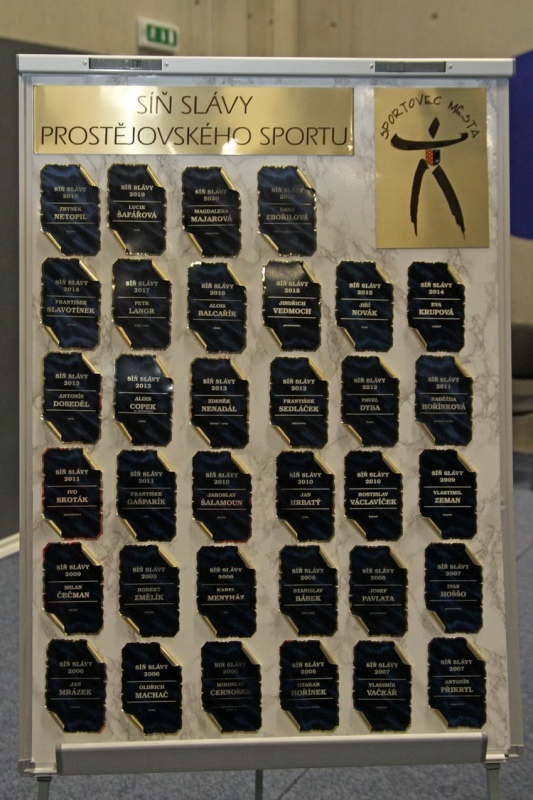 SÍŇ SLÁVY
PROSTĚJOVSKÉHO SPORTU
SPORTOVEC MĚSTA
SÍŇ SLÁVY
ZBYNĚK
NETOPIL
SÍŇ SLÁVY
2019
LUCIE
ŠAFÁŘOVÁ
SÍŇ SLÁVY
2020
MAGDALENA
MAJAROVÁ
SÍŇ SLÁVY
DANA
ZBOŘILOVÁ
SÍŇ SLÁVY
FRANTIŠEK
SLAVOTÍNEK
SÍŇ SLÁVY
2017
PETR
LANGR
SÍŇ SLÁVY
2016
ALOIS
BALCAŘÍK
SÍŇ SLÁVY
2015
JINDŘICH
VEDMOCH
SÍŇ SLÁVY
2015
JIŘÍ
NOVÁK
SÍŇ SLÁVY
2014
EVA
KRUPOVÁ
SÍŇ SLÁVY
2013
ANTONÍN
DOSEDĚL
SÍŇ SLÁVY
2013
ALOIS
COPEK
SÍŇ SLÁVY
2013
ZDENĚK
NENADÁL
SÍŇ SLÁVY
2012
FRANTIŠEK
SEDLÁČEK
SÍŇ SLÁVY
2012
PAVEL
DYBA
SÍŇ SLÁVY
2011
NADĚŽDA
HOŘÍNKOVÁ
SÍŇ SLÁVY
2011
IVO
SKOTÁK
SÍŇ SLÁVY
2011
FRANTIŠEK
GAŠPARÍK
SÍŇ SLÁVY
2010
JAROSLAV
ŠALAMOUN
SÍŇ SLÁVY
2010
JAN
HRBATÝ
SÍŇ SLÁVY
2010
ROSTISLAV
VÁCLAVÍČEK
SÍŇ SLÁVY
2009
VLASTIMIL
ZEMAN
SÍŇ SLÁVY
2009
MILAN
ČEČMAN
SÍŇ SLÁVY
2009
ROBERT
ZMĚLÍK
SÍŇ SLÁVY
KAREL
MENYHÁZ
SÍŇ SLÁVY
2008
STANISLAV
BÁBEK
SÍŇ SLÁVY
2008
JOSEF
PAVLATA
SÍŇ SLÁVY
2007
IVAN
HOŠŠO
SÍŇ SLÁVY
2006
JAN
MRÁZEK
SÍŇ SLÁVY
2006
OLDŘICH
MACHAČ
SÍŇ SLÁVY
MIROSLAV
ČERNOŠEK
SÍŇ SLÁVY
2006
OTAKAR
HOŘÍNEK
SÍŇ SLÁVY
2007
VLADIMÍR
VAČKÁŘ
SÍŇ SLÁVY
2007
ANTONÍN
PŘIKRYL